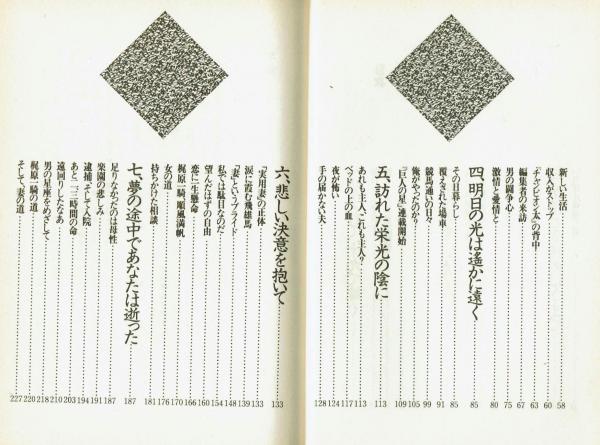 新しい生活……58
収入がストップ……60
『チャンピオン太』の背中……63
編集者の来訪……67
男の闘争心……75
激情と愛情と……80
四、明日の光は遙かに遠く……85
その日暮らし……85
覆えされた場車……91
競馬通いの日々……99
俺がやったのか?……105
『巨人の星』連載開始……109
五、訪れた栄光の陰に……113
あれも主人、これも主人?……113
ベッドの上の血……117
夜が怖い……124
手の届かない夫……128
六、悲しい決意を抱いて……133
「実用妻」の正体……133
涙に霞む飛雄馬……139
「妻」というプライド……148
私では駄目なのだ……154
望んだはずの自由……160
恋に一生懸命……166
梶原一騎、順風満帆……170
女の道……176
持ちかけた相談……181
七、夢の途中であなたは逝った……187
足りなかったのは母性……187
楽園の悲しみ……191
逮捕、そして入院……194
あと「二、三時間の命」……203
遠回りしたなあ……213
男の星座をめざして……218
梶原一騎の道……220
そして、妻の道……227